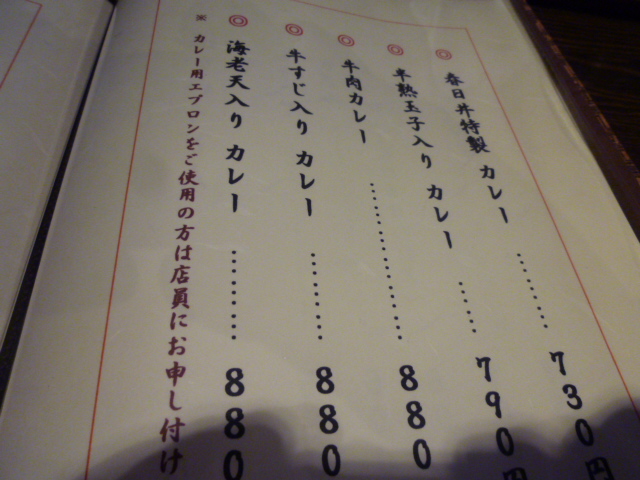 ◎ 春日井特製 カレー ……… 730円
◎ 半熟玉子入り カレー …… 790円
◎ 牛肉カレー ……………… 880
◎ 牛すじ入り カレー ……… 880
◎ 海老天入り カレー ……… 880
※ カレー用エプロンをご使用の方は店員にお申し付け